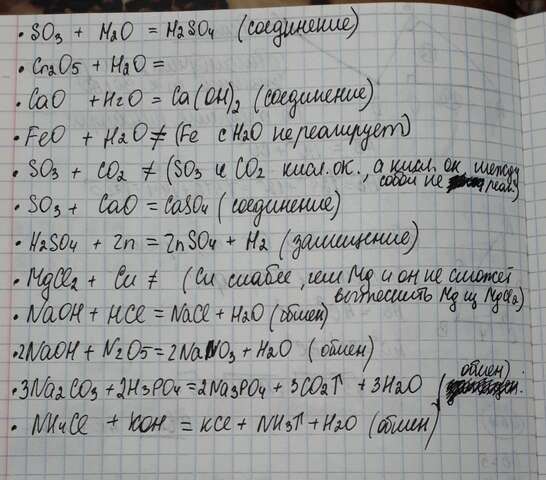 • SO3 + H2O = H2SO4 (соединение)
• Cr2O5 + H2O =
• CaO + H2O = Ca(OH)2 (соединение)
• FeO + H2O ≠ (Fe с H2O не реагирует)
• SO3 + CO2 ≠ (SO3 и CO2 кисл. ок., а кисл. ок. между
собой не реаг)
• SO3 + CaO = CaSO4 (соединение)
• H2SO4 + Zn = ZnSO4 + H2 (замещение)
• MgCl2 + Cu ≠ (Cu слабее, чем Mg и он не сможет
вытеснить Mg из MgCl2)
• NaOH + HCl = NaCl + H2O (обмен)
• 2NaOH + N2O5 = 2NaNO3 + H2O (обмен)
• 3Na2CO3 + 2H3PO4 = 2Na3PO4 + 3CO2↑ + 3H2O (обмен)
• NH4Cl + KOH = KCl + NH3↑ + H2O (обмен)